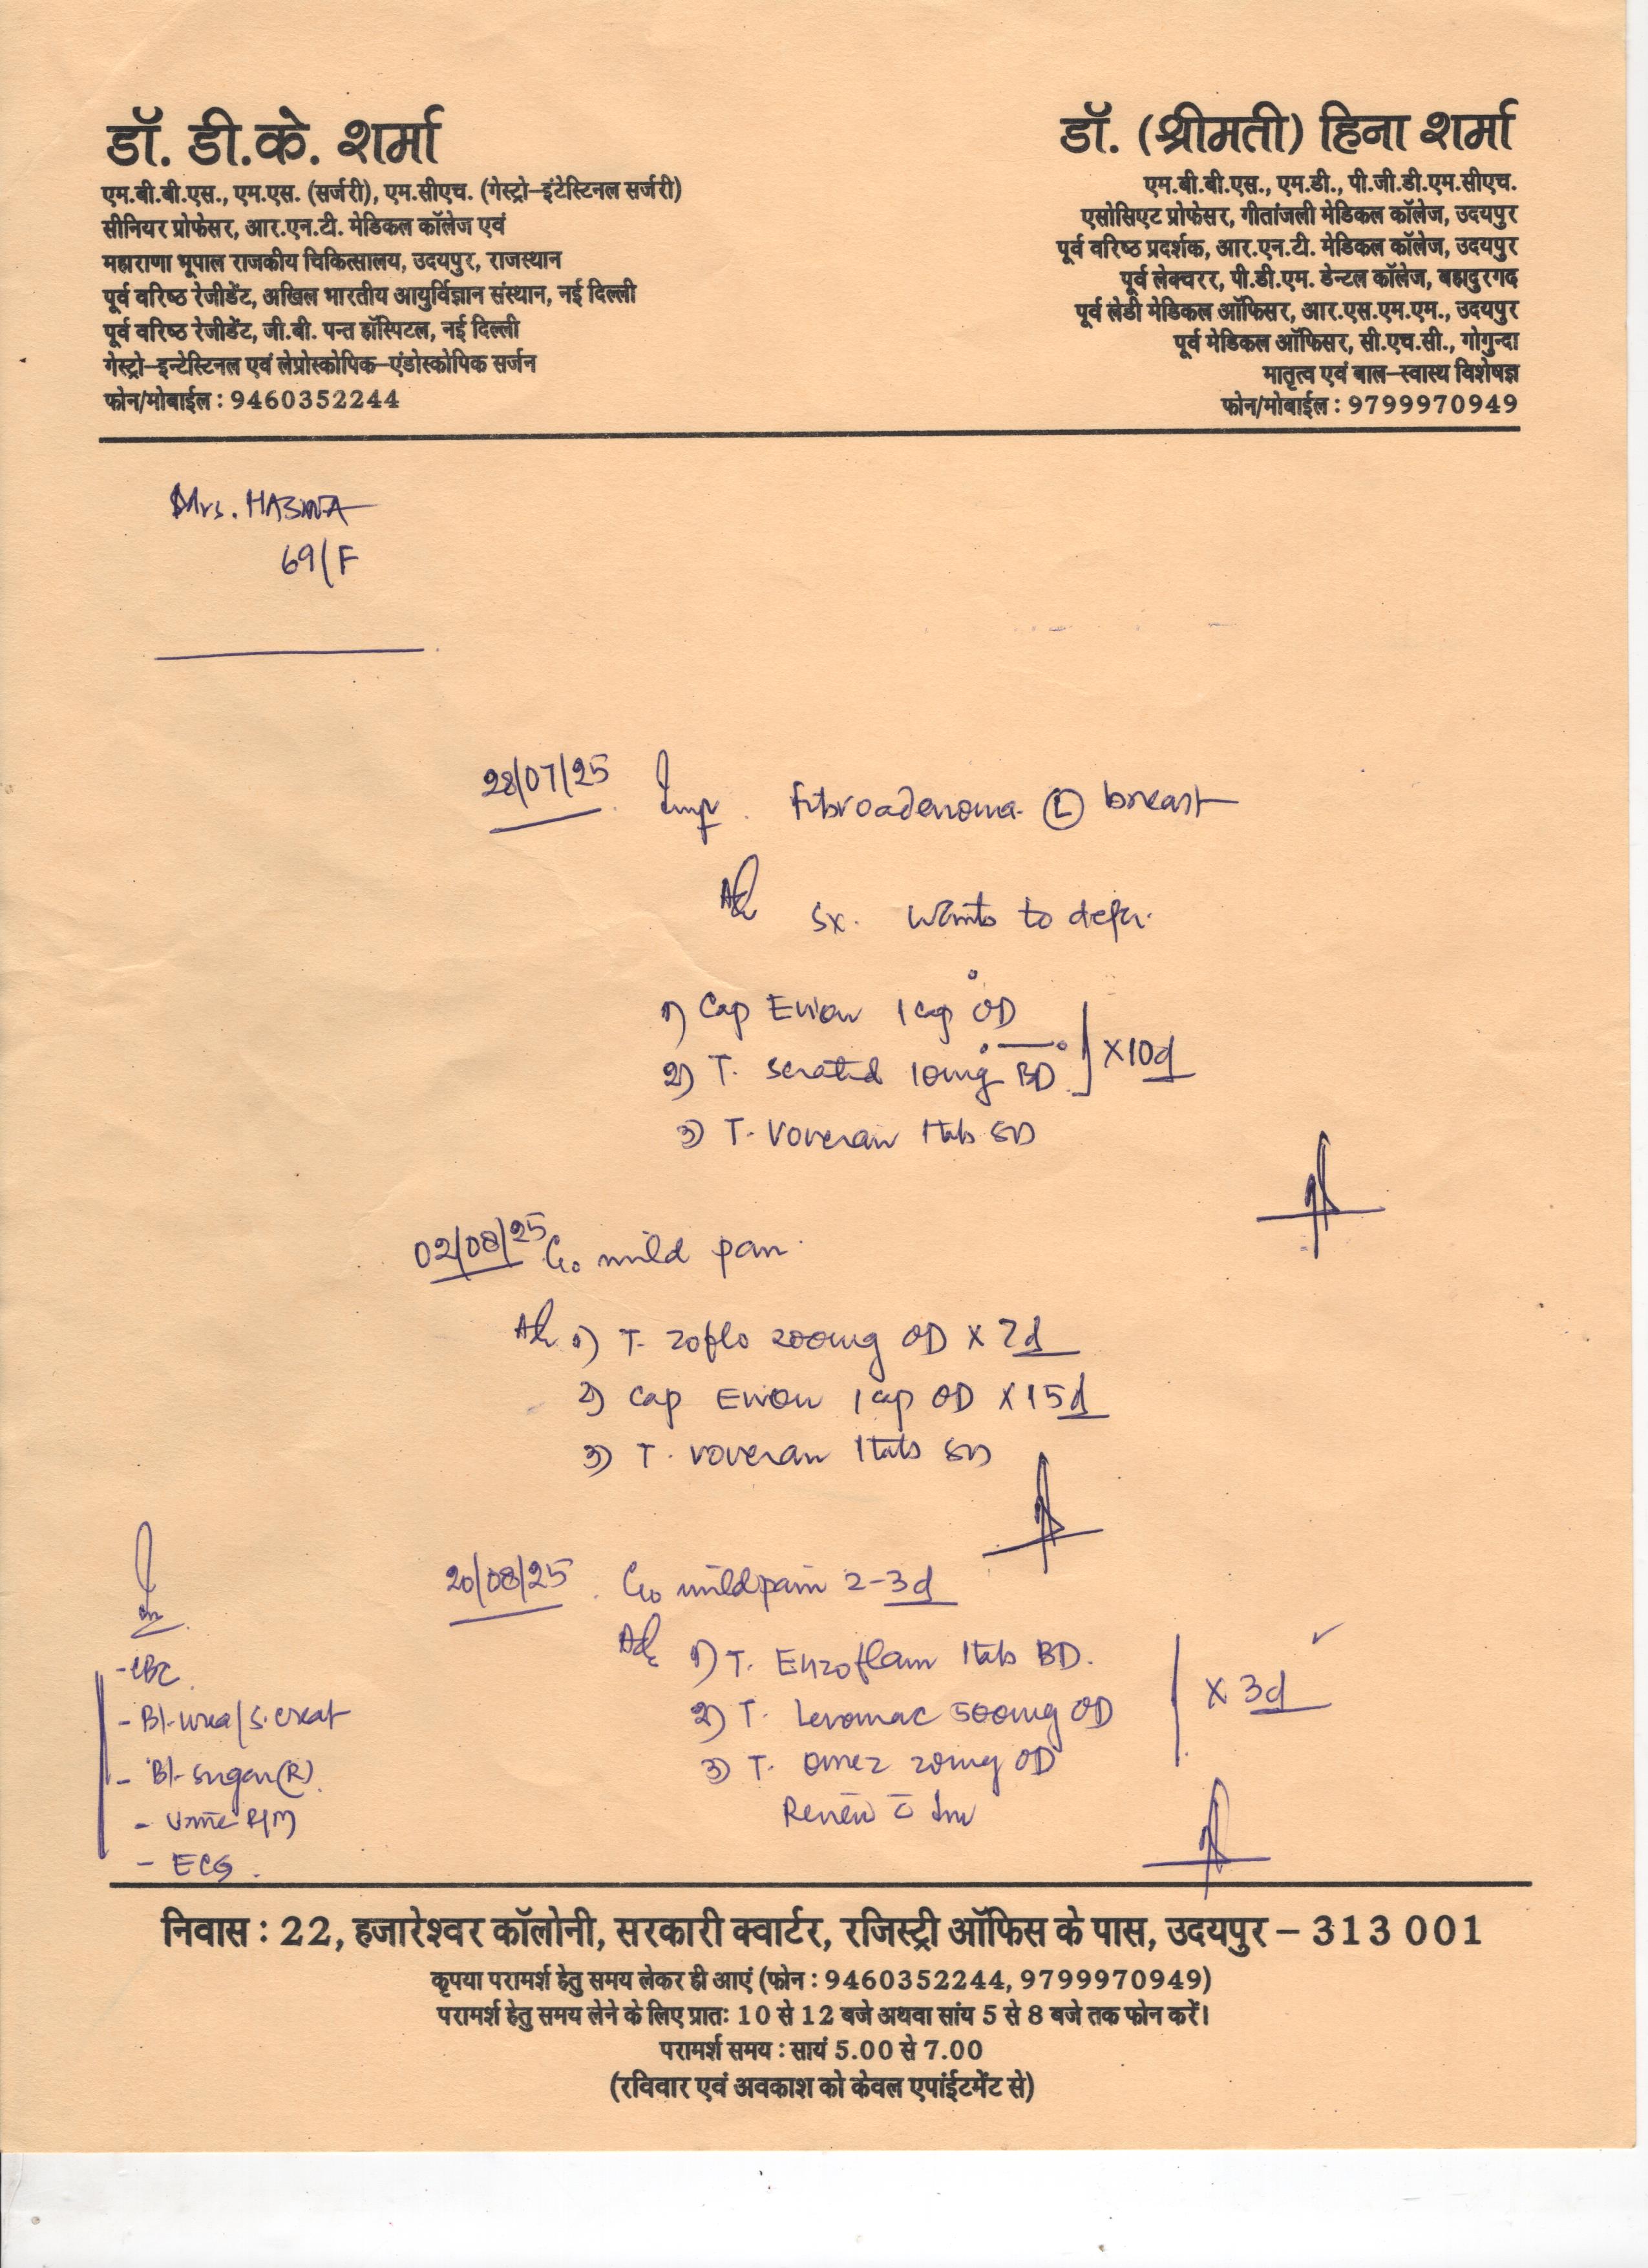 डॉ. डी.के. शर्मा
एम.बी.बी.एस., एम.एस. (सर्जरी), एम.सीएच. (गेस्ट्रो-इंटेस्टिनल सर्जरी)
सीनियर प्रोफेसर, आर.एन.टी. मेडिकल कॉलेज एवं
महाराणा भूपाल राजकीय चिकित्सालय, उदयपुर, राजस्थान
पूर्व वरिष्ठ रेजीडेंट, अखिल भारतीय आयुर्विज्ञान संस्थान, नई दिल्ली
पूर्व वरिष्ठ रेजीडेंट, जी.बी. पन्त हॉस्पिटल, नई दिल्ली
गेस्ट्रो-इन्टेस्टिनल एवं लेप्रोस्कोपिक-एंडोस्कोपिक सर्जन
फोन/मोबाईल : 9460352244
डॉ. (श्रीमती) हिना शर्मा
एम.बी.बी.एस., एम.डी., पी.जी.डी.एम.सीएच.
एसोसिएट प्रोफेसर, गीतांजली मेडिकल कॉलेज, उदयपुर
पूर्व वरिष्ठ प्रदर्शक, आर.एन.टी. मेडिकल कॉलेज, उदयपुर
पूर्व लेक्चरर, पी.डी.एम. डेन्टल कॉलेज, बहादुरगढ
पूर्व लेडी मेडिकल ऑफिसर, आर.एस.एम.एम., उदयपुर
पूर्व मेडिकल ऑफिसर, सी.एच.सी., गोगुन्दा
मातृत्व एवं बाल-स्वास्थ विशेषज्ञ
फोन/मोबाईल : 9799970949
Mrs. HASINA
69/F
28/07/25 Imp. Fibroadenoma (L) breast
Adv Sx. Wants to defer.
1) Cap Evion 1 cap OD
2) T. 10mg BD x 10d
3) T. Voveran 1 tab
02/08/25 C/o mild pain
Adv 1) T. Zoflo 200mg OD x 7d
2) Cap Evion 1 cap OD x 15d
3) T. Voveran 1 tab
20/08/25 C/o mild pain 2-3d
Adv 1) T. Enzoflam 1 tab BD.
2) T. Levomac 500mg OD x 3d
3) T. Omez 20mg OD
Review c̄ Inv
Inv
- CBC
- Bl. urea/S. creat
- Bl. sugar (R)
- Urine R/M
- ECG.
निवास : 22, हजारेश्वर कॉलोनी, सरकारी क्वार्टर, रजिस्ट्री ऑफिस के पास, उदयपुर - 313 001
कृपया परामर्श हेतु समय लेकर ही आएं (फोन : 9460352244, 9799970949)
परामर्श हेतु समय लेने के लिए प्रातः 10 से 12 बजे अथवा सांय 5 से 8 बजे तक फोन करें।
परामर्श समय : सायं 5.00 से 7.00
(रविवार एवं अवकाश को केवल एपांईटमेंट से)